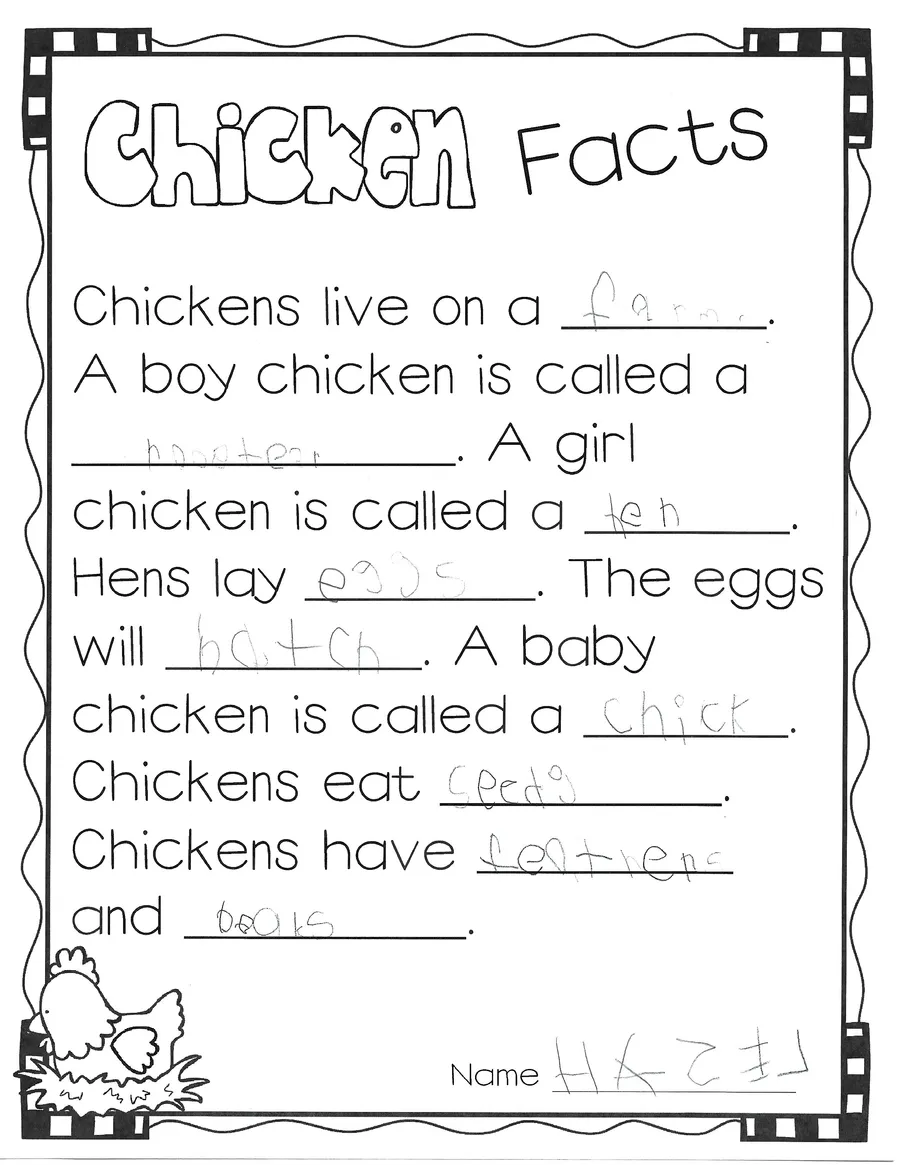 Chicken Facts
Chickens live on a farm.
A boy chicken is called a
rooster. A girl
chicken is called a hen.
Hens lay eggs. The eggs
will hatch. A baby
chicken is called a chick.
Chickens eat seeds.
Chickens have feathers
and beaks.
Name HAZEL